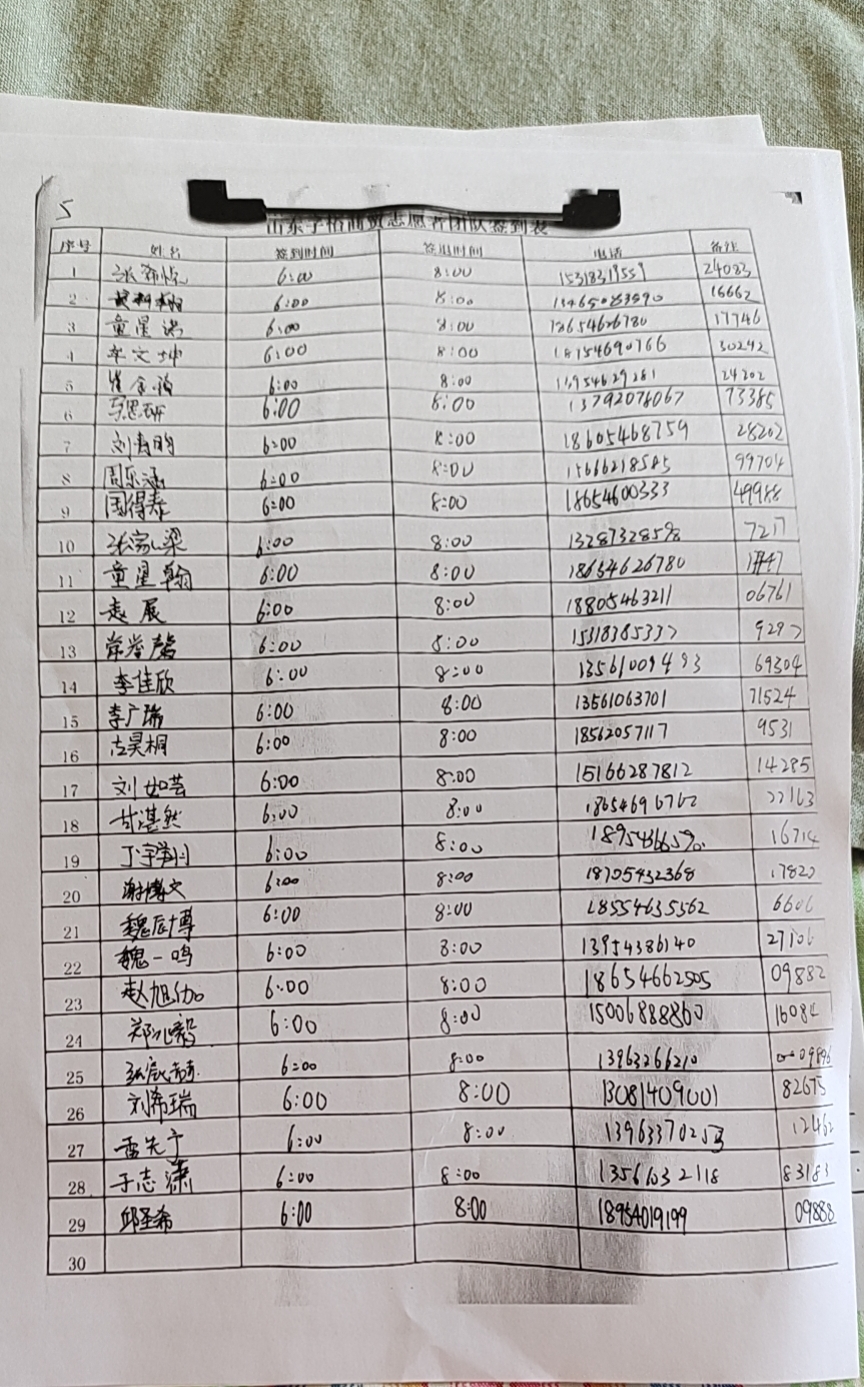 5
山东字桥商贸志愿者团队签到表
序号 姓名 签到时间 签退时间 电话 备注
1 6:00 8:00 15318319559 24083
2 6:00 8:00 16662
3 童星 6:00 8:00 17746
4 李文坤 6:00 8:00 18154690766 30242
5 6:00 8:00 24202
6 马思研 6:00 8:00 13792078067 73385
7 刘 6:00 8:00 18605468759 28202
8 周乐涵 6:00 8:00 15666218585 99704
9 国得春 6:00 8:00 18654600333 49988
10 张家梁 6:00 8:00 13287328598 7217
11 童星翰 6:00 8:00 18654626780
12 袁展 6:00 8:00 18805463211 06761
13 6:00 8:00 15318385337 9297
14 李佳欣 6:00 8:00 13561009493 69304
15 李广瑞 6:00 8:00 13561063701 71524
16 古昊桐 6:00 8:00 18562057117 9531
17 刘如芸 6:00 8:00 15166287812 14285
18 甘湛然 6:00 8:00 18654696762 22163
19 丁宇 6:00 8:00 16714
20 谢博文 6:00 8:00 18705432368 17820
21 魏辰博 6:00 8:00 18554635562 6606
22 魏一鸣 6:00 8:00 13954386140 27106
23 赵旭伽 6:00 8:00 18654662505 09882
24 郑兆毅 6:00 8:00 15006888860 16084
25 张 6:00 8:00 13963266210 09896
26 刘希瑞 6:00 8:00 13081409001 82675
27 雷先宁 6:00 8:00 12462
28 于志潇 6:00 8:00 13561032118 83183
29 邱圣希 6:00 8:00 18954019199 09888
30